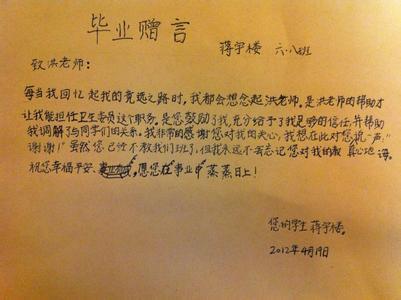 毕业赠言
蒋宇楼 六·八班
致洪老师：
每当我回忆起我的竞选之路时，我都会想念起洪老师，是洪老师的帮助才
让我能担任卫生委员这个职务。是您鼓励了我，充分给予了我足够的信任，并帮助
我调解了与同学们的关系。我非常的感谢您对我的关心，我想在此对您说一声"
谢谢！"虽然您已经不教我们班了，但我永远不会忘记您对我的教 真心地 诲。
祝您幸福平安、愿您在事业中蒸蒸日上！
您的学生 蒋宇楼。
2012年4月19日